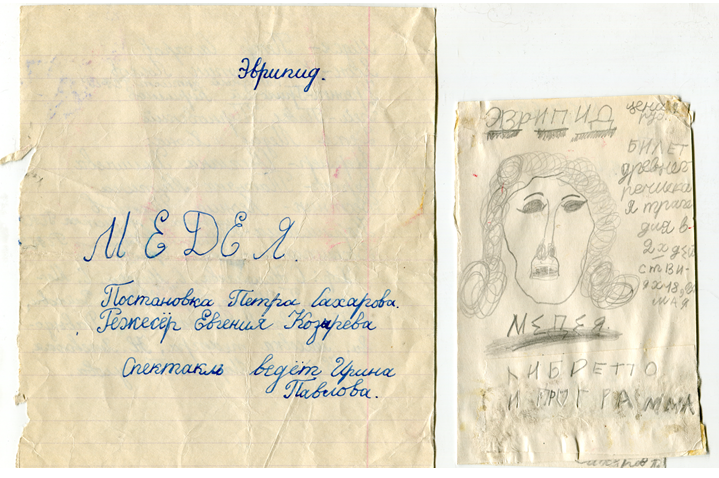 Эврипид.
МЕДЕЯ.
Постановка Петра Сахарова.
Режесёр Евгения Козырева
Спектакль ведёт Ирина
Павлова.
ЭВРИПИД
цена
руб.
БИЛЕТ
древнег
речиская
я траге
дия в
2х дей
стви
ях 18
мая
МЕДЕЯ.
ЛИБРЕТТО
И ПРОГРАММА